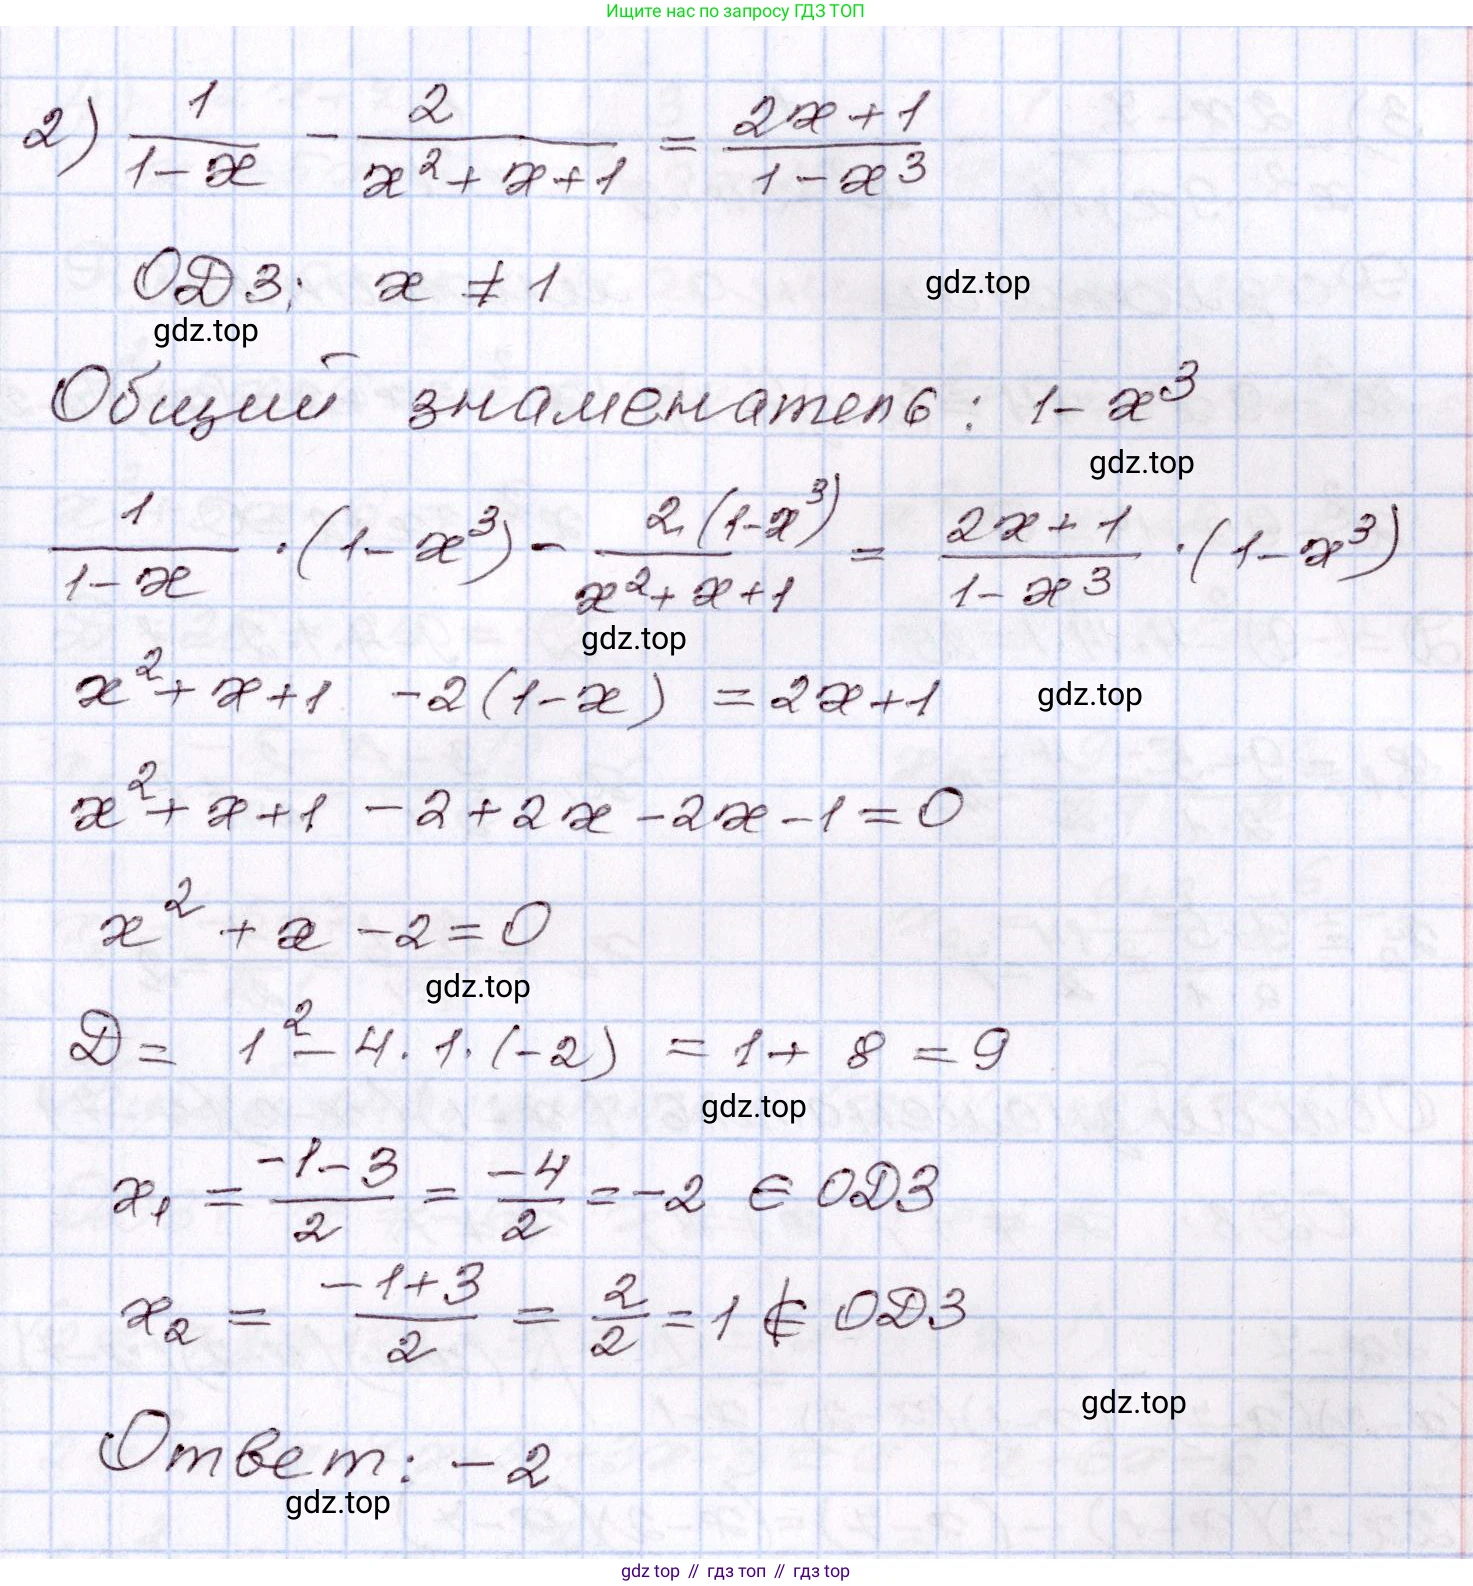 Ищите нас по запросу ГДЗ ТОП
2) 1/(1-x) - 2/(x²+x+1) = (2x+1)/(1-x³)
ОДЗ: x ≠ 1
gdz.top
gdz.top
Общий знаменатель: 1-x³
gdz.top
1/(1-x) · (1-x³) - 2(1-x³)/(x²+x+1) = (2x+1)/(1-x³) · (1-x³)
gdz.top
x²+x+1 -2(1-x) = 2x+1
gdz.top
x²+x+1 -2+2x-2x-1=0
x²+x-2=0
gdz.top
D= 1²-4·1·(-2) = 1+8=9
gdz.top
x₁ = (-1-3)/2 = -4/2 = -2 ∈ ОДЗ
x₂ = (-1+3)/2 = 2/2 = 1 ∉ ОДЗ
gdz.top
Ответ: -2
gdz.top
gdz top // гдз топ // гдз top